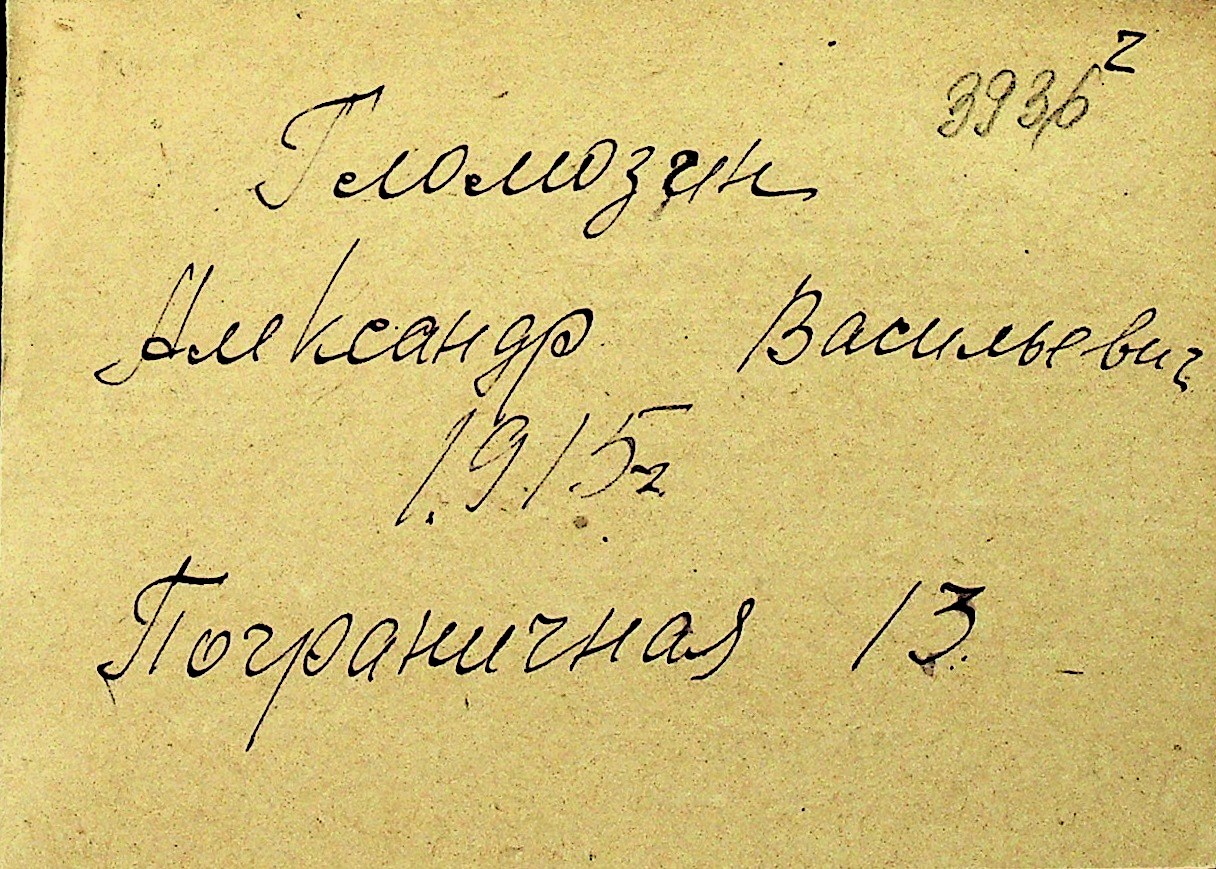 3936 2
Гломозин
Александр Васильевич
1915 г.
Пограничная 13